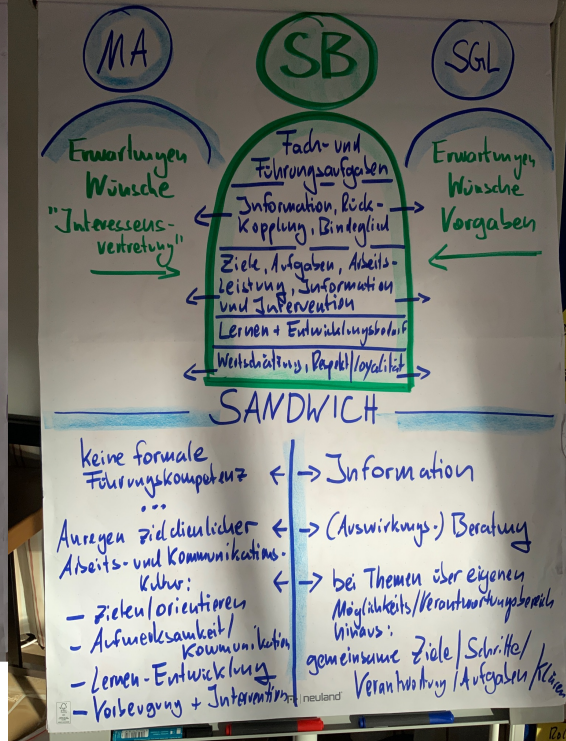 MA
SB
SGL
Erwartungen
Wünsche
"Interessens-
vertretung"
Fach- und
Führungsaufgaben
Information, Rück-
Kopplung, Bindeglied
Ziele, Aufgaben, Arbeits-
Leistung, Information
und Intervention
Lernen + Entwicklungsbedarf
Wertschätzung, Respekt/Loyalität
Erwartungen
Wünsche
Vorgaben
SANDWICH
keine formale
Führungskompetenz
...
Anregen zieldienlicher
Arbeits- und Kommunikations-
Kultur:
- Zielen/orientieren
- Aufmerksamkeit/
Kommunikation
- Lernen-Entwicklung
- Vorbeugung + Intervention
Information
(Auswirkungs-) Beratung
bei Themen über eigenen
Möglichkeits/Verantwortungsbereich
hinaus:
gemeinsame Ziele/Schritte/
Verantwortung/Aufgaben/klären
neuland
FSC